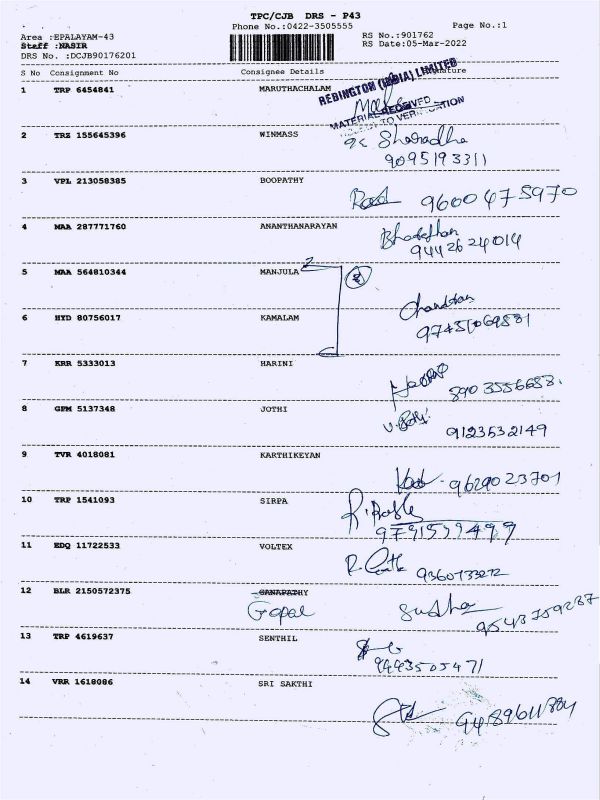 TPC/CJB DRS - P43
Phone No.:0422-3505555 Page No.:1
Area :EPALAYAM-43 RS No.:901762
Staff :NASIR RS Date:05-Mar-2022
DRS No. :DCJB90176201
S No Consignment No Consignee Details
1 TRP 6454841 MARUTHACHALAM
REDINGTON (INDIA) LIMITED
MATERIAL RECEIVED
TO VERIFICATION
2 TRZ 155645396 WINMASS Sharadha
9095193311
3 VPL 213058385 BOOPATHY
4 MAA 287771760 ANANTHANARAYAN
9442624014
5 MAA 564810344 MANJULA
6 HYD 80756017 KAMALAM
7 KRR 5333013 HARINI
8903556688
8 GPM 5137348 JOTHI
9123532149
9 TVR 4018081 KARTHIKEYAN
9629023701
10 TRP 1541093 SIRPA
11 EDQ 11722533 VOLTEX
12 BLR 2150572375 GANAPATHY
Gopal Sudha
13 TRP 4619637 SENTHIL
9443505471
14 VRR 1618086 SRI SAKTHI